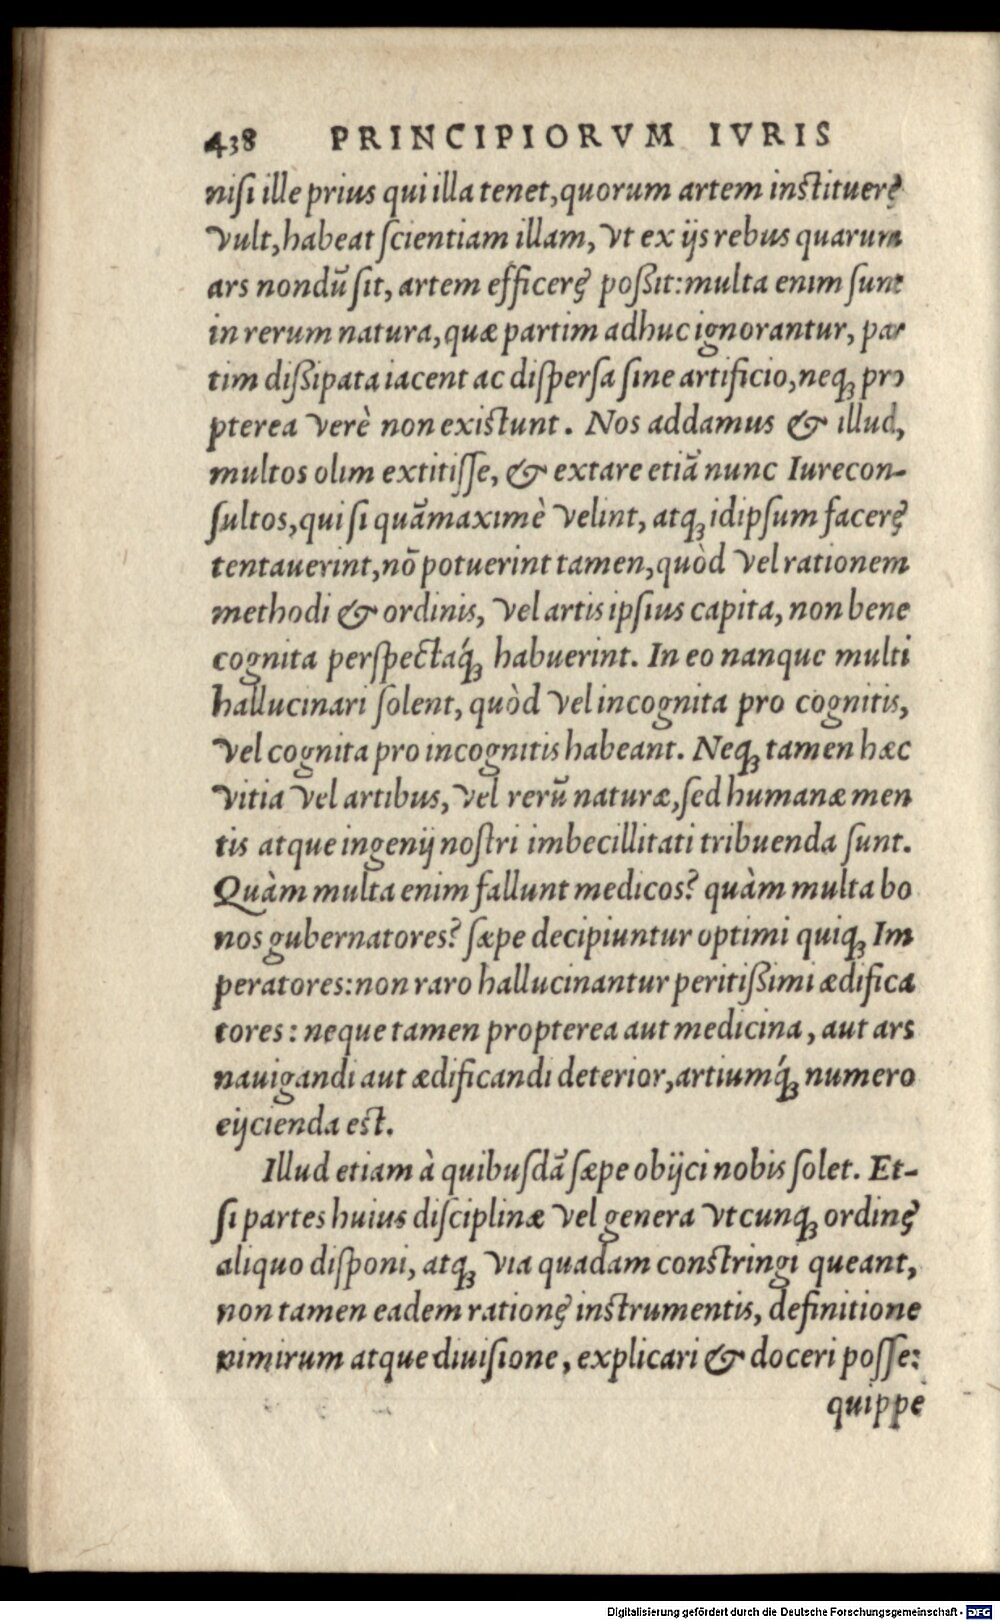 438 PRINCIPIORVM IVRIS
niſi ille prius qui illa tenet, quorum artem inſtituerę
vult, habeat ſcientiam illam, vt ex ijs rebus quarum
ars nondũ ſit, artem efficerę poßit: multa enim ſunt
in rerum natura, quæ partim adhuc ignorantur, par
tim dißipata iacent ac diſperſa ſine artificio, neqꝫ pro
pterea verè non exiſtunt. Nos addamus & illud,
multos olim extitiſſe, & extare etiã nunc Iurecon-
ſultos, qui ſi quãmaximè velint, atqꝫ idipſum facerę
tentauerint, nõ potuerint tamen, quòd vel rationem
methodi & ordinis, vel artis ipſius capita, non bene
cognita perſpectaq́ꝫ habuerint. In eo nanque multi
hallucinari ſolent, quòd vel incognita pro cognitis,
vel cognita pro incognitis habeant. Neqꝫ tamen hæc
vitia vel artibus, vel rerũ naturæ, ſed humanæ men
tis atque ingenij noſtri imbecillitati tribuenda ſunt.
Quàm multa enim fallunt medicos? quàm multa bo
nos gubernatores? ſæpe decipiuntur optimi quiqꝫ Im
peratores: non raro hallucinantur peritißimi ædifica
tores: neque tamen propterea aut medicina, aut ars
nauigandi aut ædificandi deterior, artiumq́ꝫ numero
eijcienda eſt.
Illud etiam à quibuſdã ſæpe obijci nobis ſolet. Et-
ſi partes huius diſciplinæ vel genera vtcunqꝫ ordinę
aliquo diſponi, atqꝫ via quadam conſtringi queant,
non tamen eadem rationę inſtrumentis, definitione
nimirum atque diuiſione, explicari & doceri poſſe:
quippe
Digitalisierung gefördert durch die Deutsche Forschungsgemeinschaft - DFG